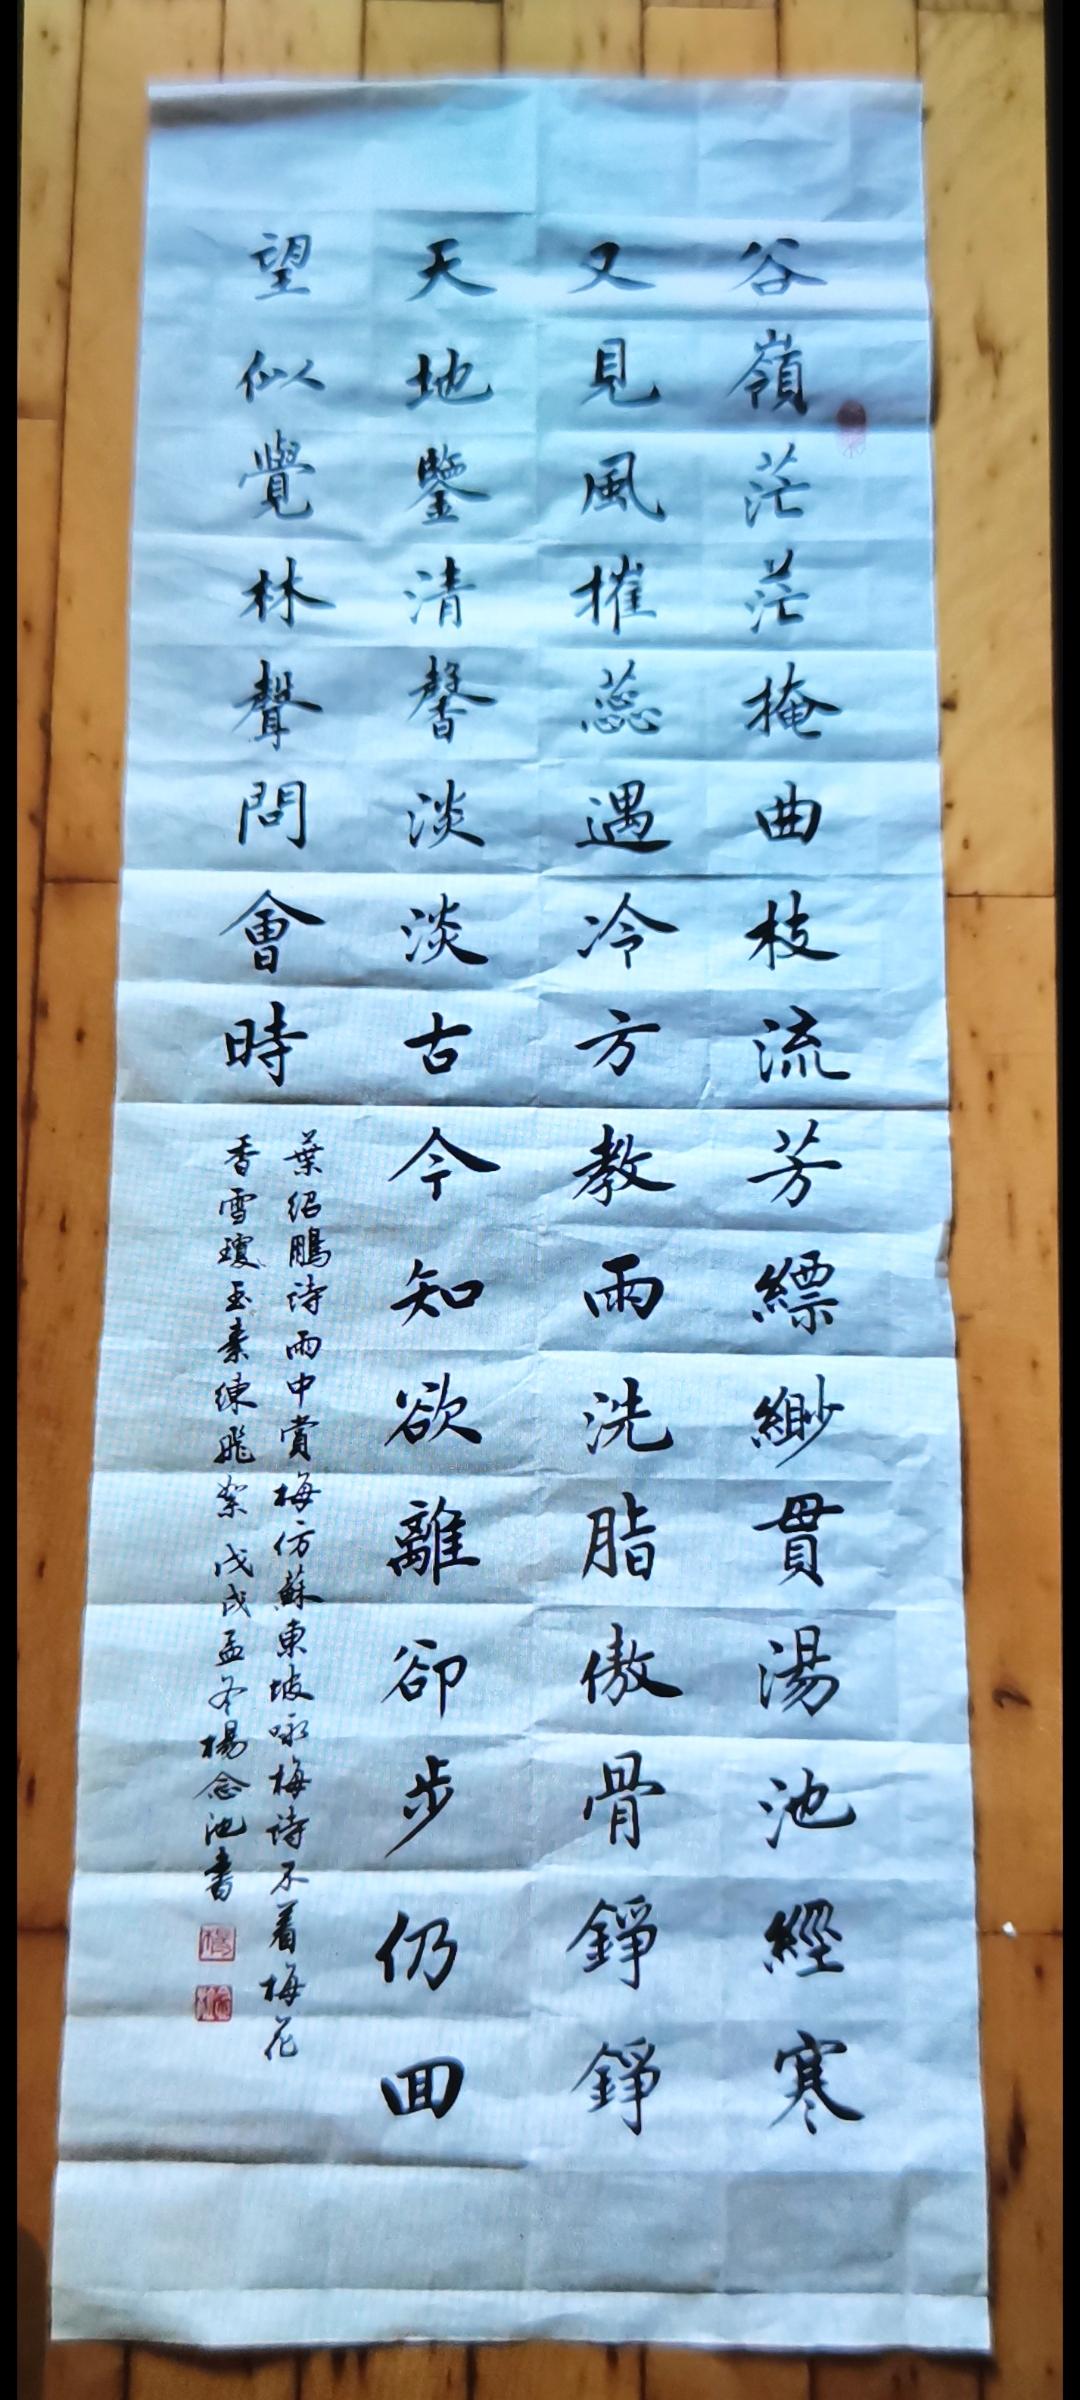 谷嶺茫茫掩曲枝流芳縹緲貫湯池經寒
又見風摧蕊遇冷方教雨洗脂傲骨錚錚
天地鑒清馨淡淡古今知欲離卻步仍回
望似覺林聲問會時
葉紹鵬詩雨中賞梅仿蘇東坡咏梅詩不着梅花
香雪瓊玉素練飛絮 戊戌孟冬楊念池書